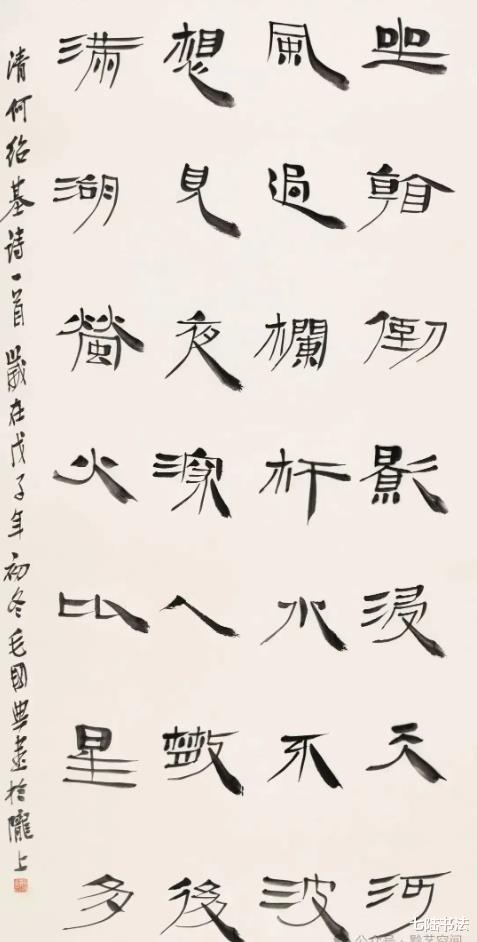 坐看倒影浸天河
風過欄杆水不波
想見夜深人散後
滿湖螢火比星多
清何绍基诗一首 歲在戊子年初冬毛國典書於隴上
七陆书法